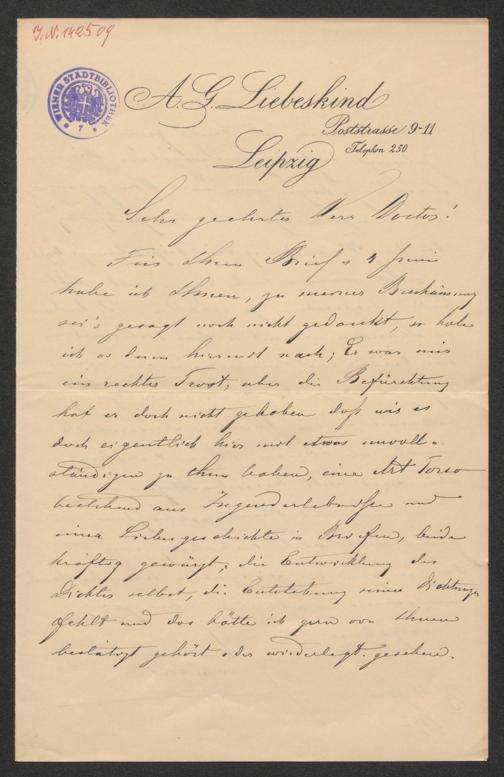 J.N. 142509
WIENER STADTBIBLIOTHEK
7
A. G. Liebeskind
Poststrasse 9-11
Telephon 230.
Leipzig
Sehr geehrter Herr Doctor!
Für Ihren Brief v 4 Juni
habe ich Ihnen, zu meiner Beschämung
sei's gesagt noch nicht gedankt, so hole
ich es denn hiermit nach; Er war mir
ein rechter Trost, aber die Befürchtung
hat er doch nicht gehoben daß wir es
doch eigentlich hier mit etwas unvoll-
ständigem zu thun haben, eine Art Torso
bestehend aus Jugenderlebnissen und
einer Liebesgeschichte in Briefen, beide
kräftig gewürzt; die Entwicklung des
Dichters selbst, die Entstehung seiner Dichtungen
fehlt und das hätte ich gern von Ihnen
bestätigt gehört oder wiederlegt gesehen.